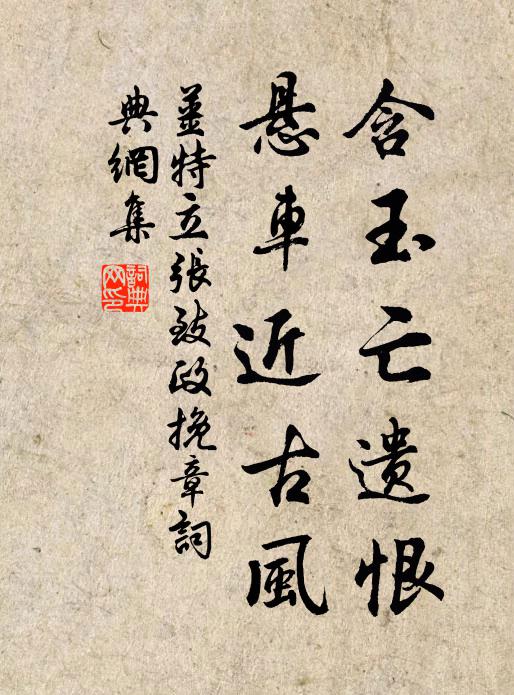 含玉亡遗恨
悬車近古風
薑特立張致政挽章詞
典網集
詞典网印